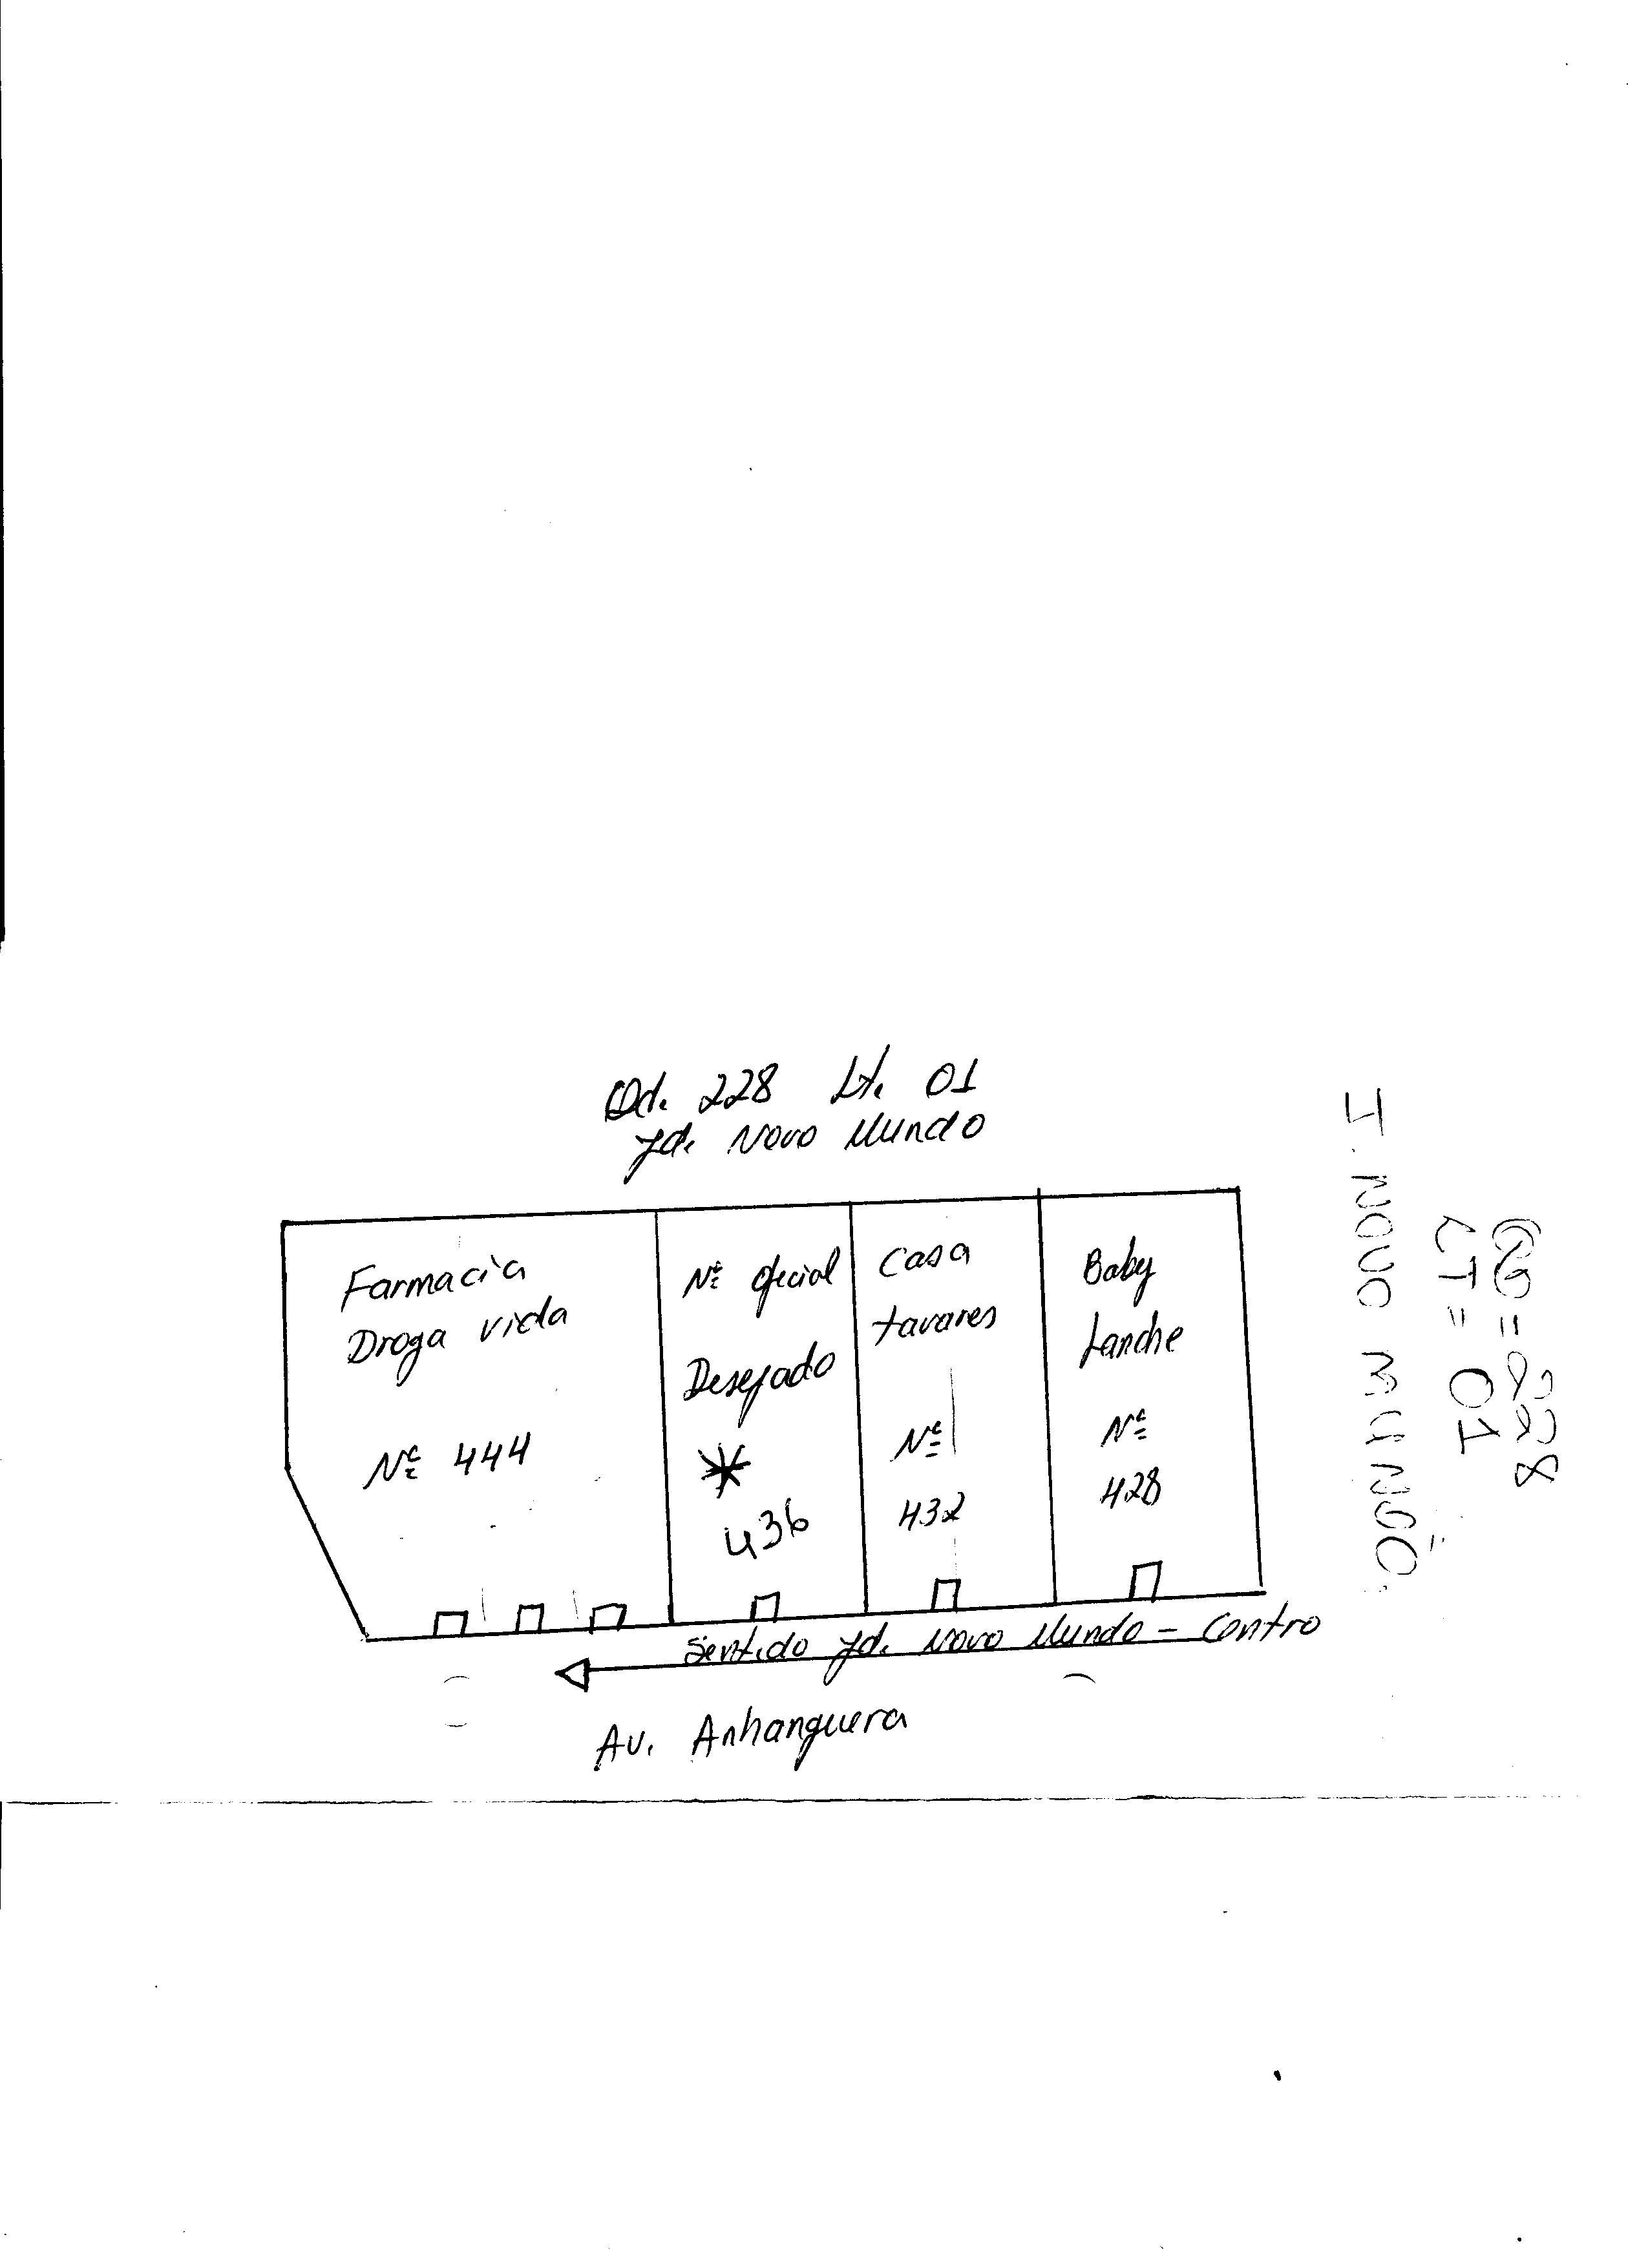 Qd. 228 Lt. 01
Jd. Novo Mundo
Farmacia
Droga vida
Nº 444
Nº oficial
Desejado
*
436
Casa
tavares
Nº
432
Baby
Lanche
Nº
428
Sentido Jd. Novo Mundo - Centro
Av. Anhanguera
QD = 228
LT = 01
J. NOVO MUNDO.